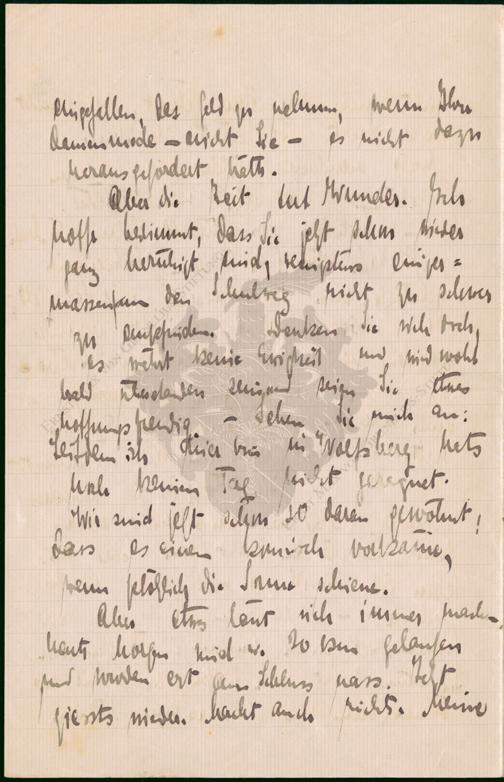 eingefallen, das Geld zu nehmen, wenn Ihre
Damenmode – nicht Sie – es nicht dazu
herausgefordert hätte.
Aber die Zeit tut Wunder. Ich
hoffe bestimmt, dass Sie jetzt schon wieder
ganz beruhigt sind, wenigstens einiger=
massen den Schulweg nicht zu schwer
zu empfinden. Denken Sie sich doch,
es währt keine Ewigkeit und wird wohl
bald überstanden seyn seien Sie etwas
hoffnungsfreudig – sehen Sie mich an:
Seitdem ich hier bin in Wolfsberg hats
noch keinen Tag nicht geregnet.
Wir sind jetzt schon so daran gewöhnt,
dass es einem komisch vorkäme,
wenn plötzlich die Sonne schiene.
Aber etwas lässt sich immer machen,
heute morgen sind w. 20 km gelaufen
und wurden erst zum Schluss nass. Jetzt
giessts nieder. Macht auch nichts. Meine